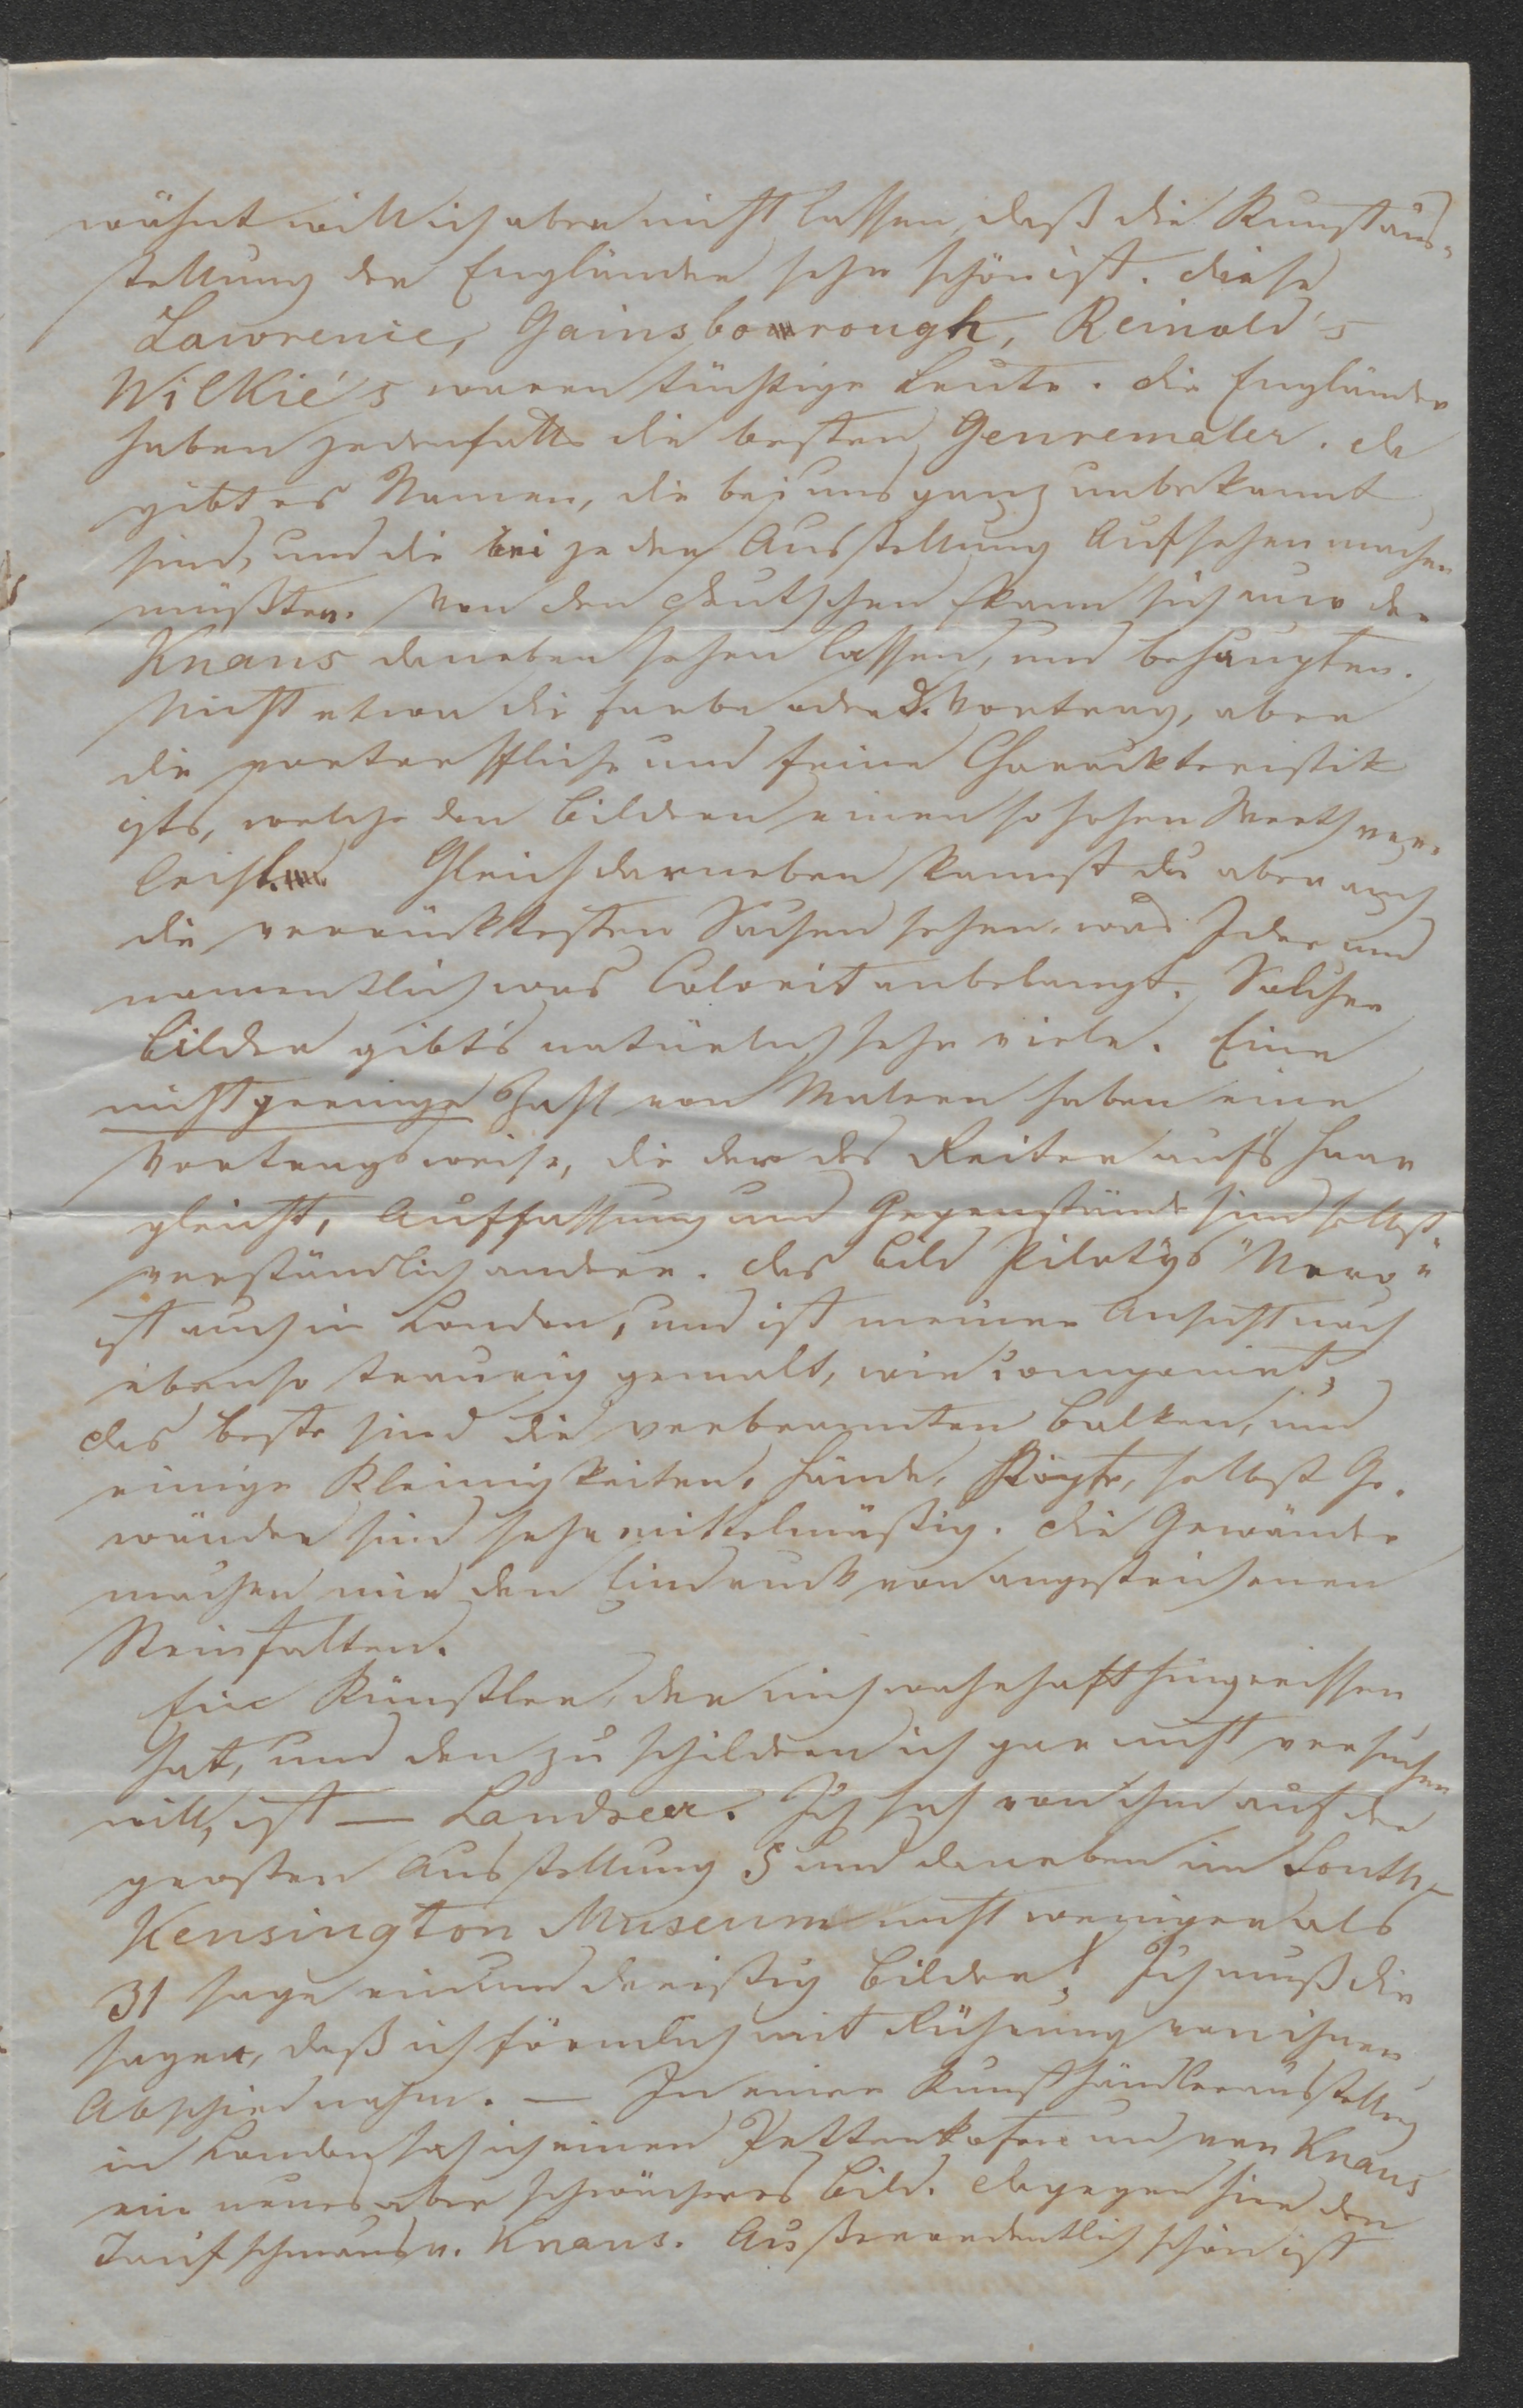 wähnt will ich aber nicht lassen, daß die Kunstaus-
stellung der Engländer sehr schön ist. diese
Lawrenie, Gainsborough, Reinold's
Wilkie's waren tüchtige Leute. die Engländer
haben jedenfalls die besten Genremaler. da
gibt es Namen, die bei uns ganz unbekannt
sind, und die bei jeder Ausstellung Aufsehen machen
müßten. Von den deutschen kann sich nur der
Knaus daneben sehen lassen, und behaupten.
Nicht etwa die Farbe oder d. Vortrag, aber
die vortreffliche und feine Charackteristik
ists, welche den Bildern einen so hohen Werth ver-
leiht. Gleich darneben kannst du aber auch
die verrücktesten Sachen sehen, was Idee und
namentlich was Colorit anbelangt. Solcher
Bilder gibt's natürlich sehr viele. Eine
nicht geringe Zahl von Malern haben eine
Vortragsweise, die der des Reiter auf's Haar
gleicht, Auffassung und Gegenstände sind selbst-
verständlich andere. das Bild Pilotÿs "Nero"
ist auch in London, und ist meiner Ansicht nach
ebenso traurig gemalt, wie componirt,
das beste sind die verbrannten Balken, und
einige Kleinigkeiten. Hände, Köpfe, selbst Ge-
wänder sind sehr mittelmäßig. die Gewänder
machen mir den Eindruck von angestrichenen
Steinfalten.
Ein Künstler, der mich wahrhaft hingerissen
hat, und den zu schildern ich gar nicht versuchen
will, ist — Landseer. Ich sah von ihm auf der
großen Ausstellung 5 und daneben im South-
Kensington Museum nicht weniger als
31 sage einunddreißig Bilder! Ich muß dir
sagen, daß ich förmlich mit Rührung von ihnen
Abschied nahm. — In einer Kunsthändlerausstellung
in London sah ich einen Pettenkofer und von Knaus
ein neues aber schwächeres Bild. dagegen hier den
Taufschmaus v. Knaus. Außerordentlich schön ist